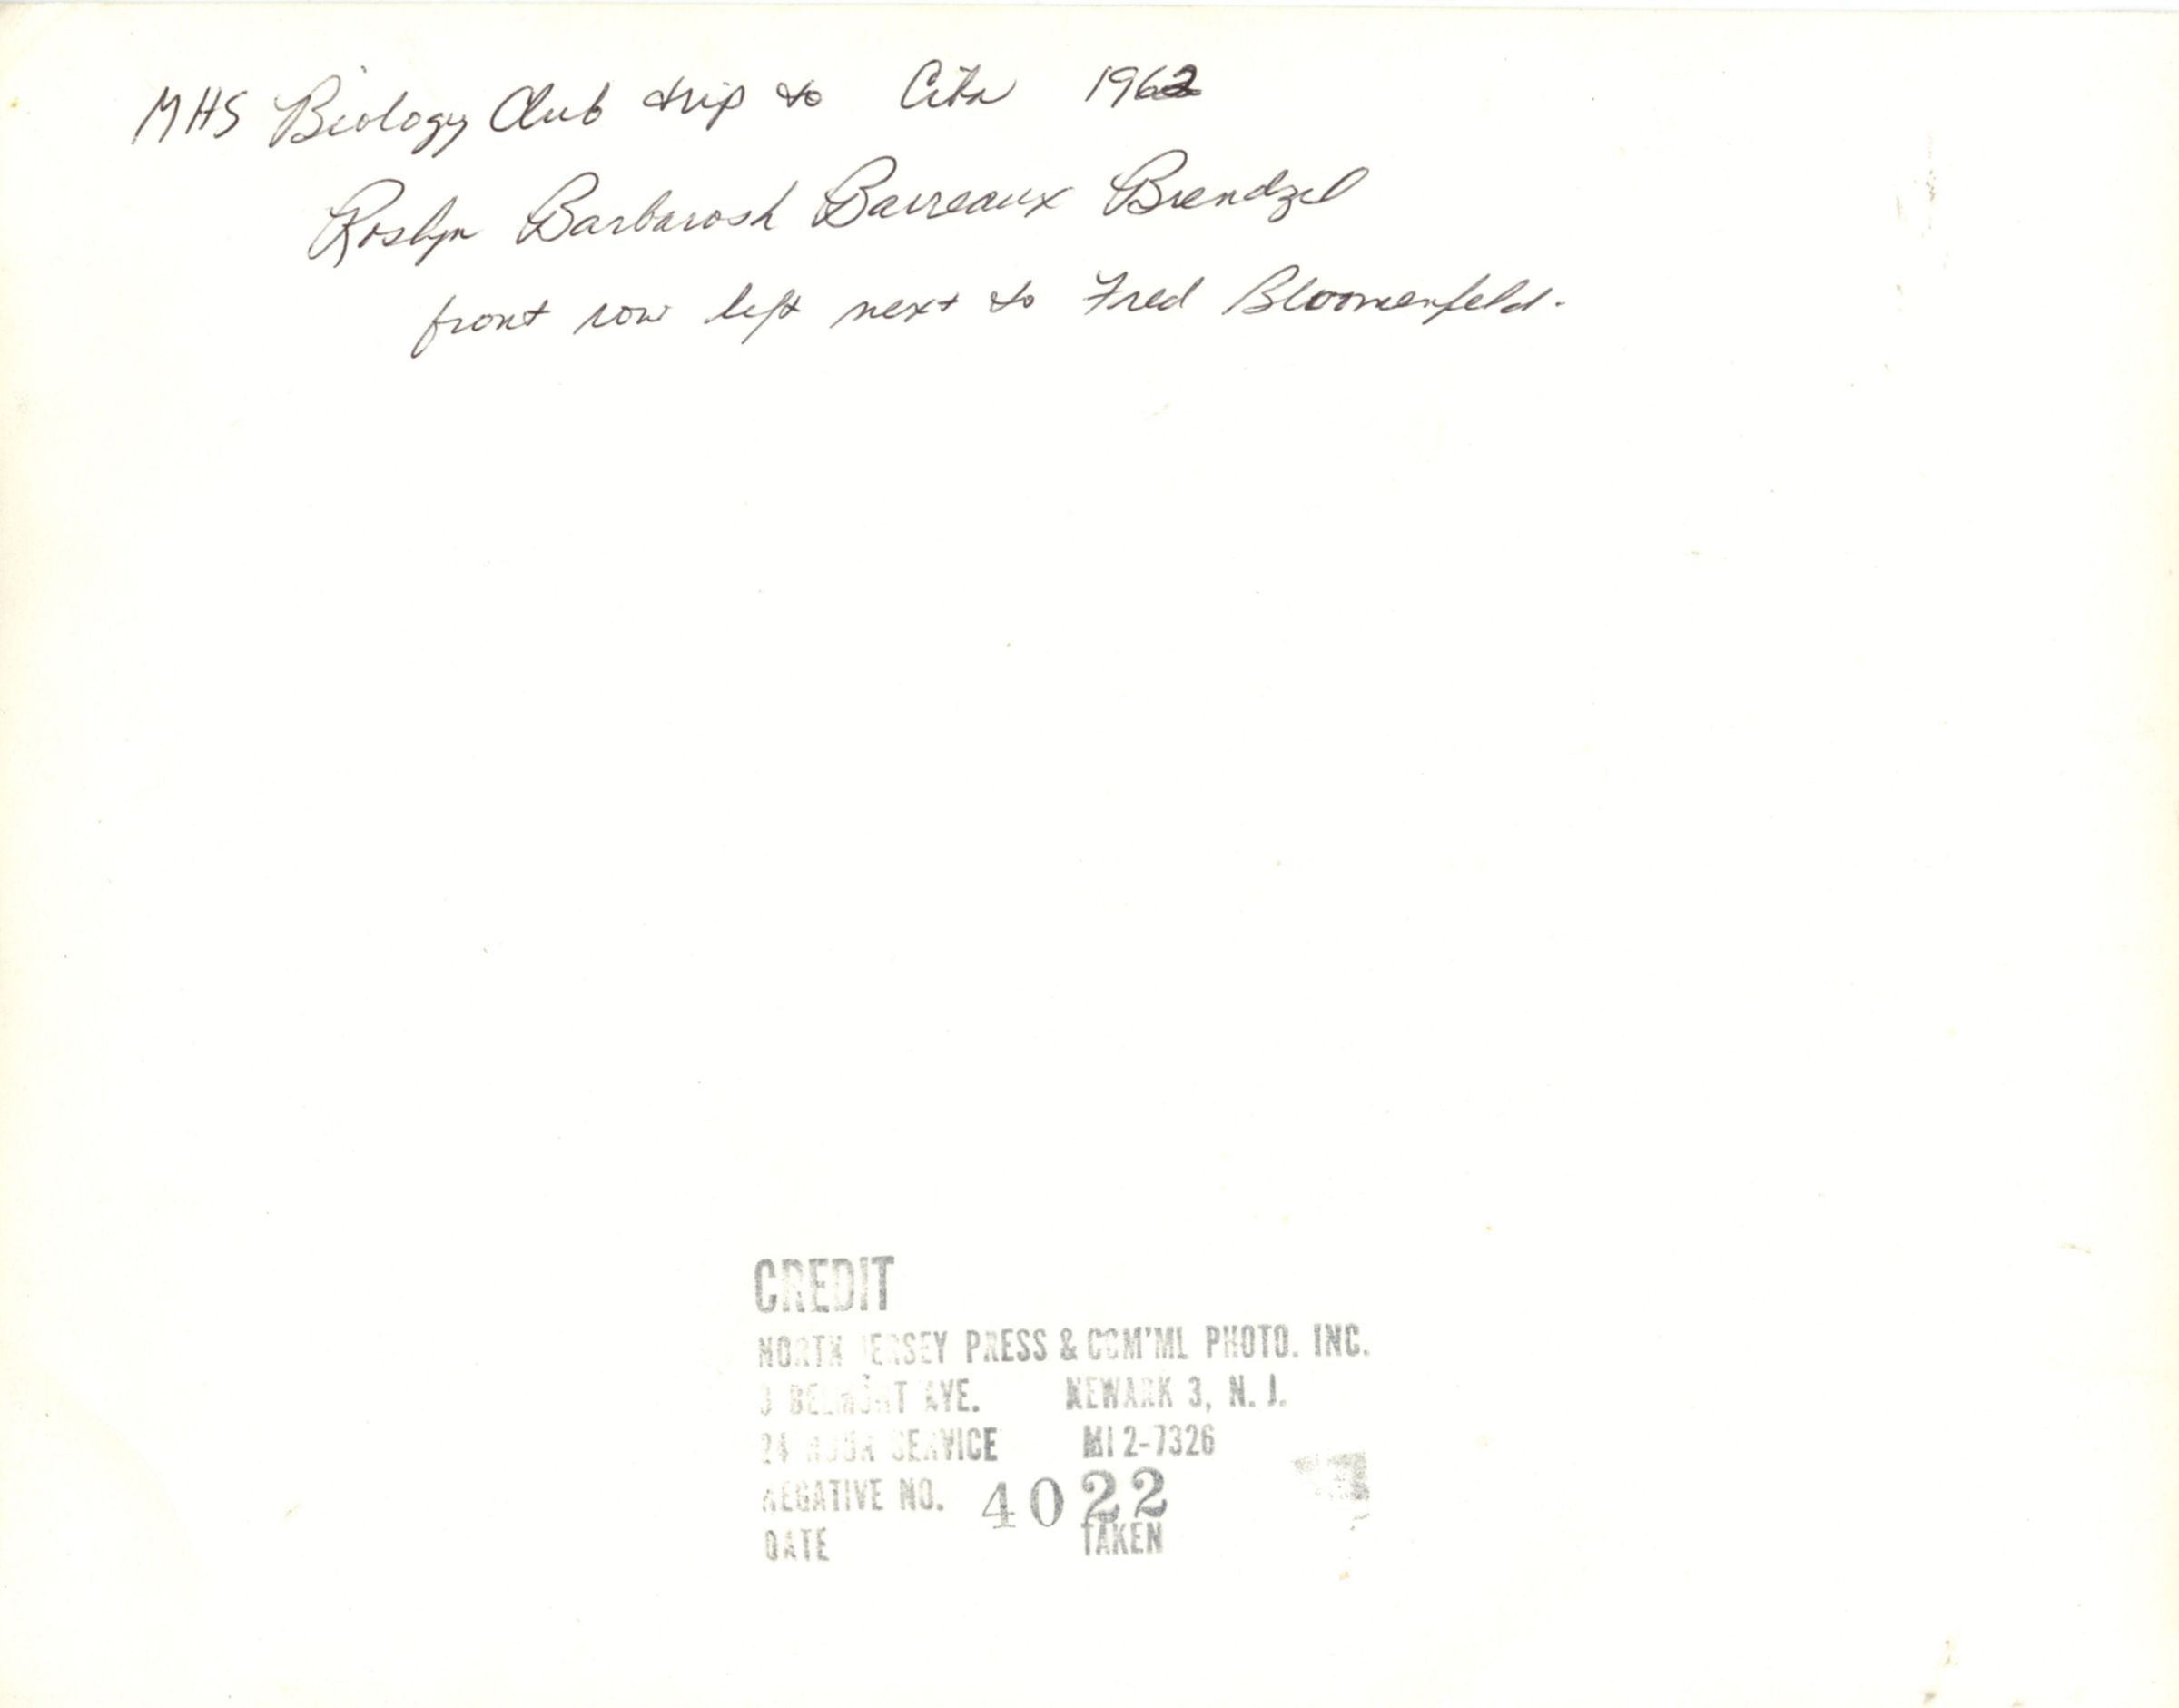 MHS Biology Club trip to Ciba 1962
Roslyn Barbarosh Barreaux Brendzel
front row left next to Fred Bloomenfeld.
CREDIT
NORTH JERSEY PRESS & COM'ML PHOTO. INC.
3 BELMONT AVE. NEWARK 3, N. J.
24 HOUR SERVICE MI 2-7326
NEGATIVE NO. 4022
DATE TAKEN